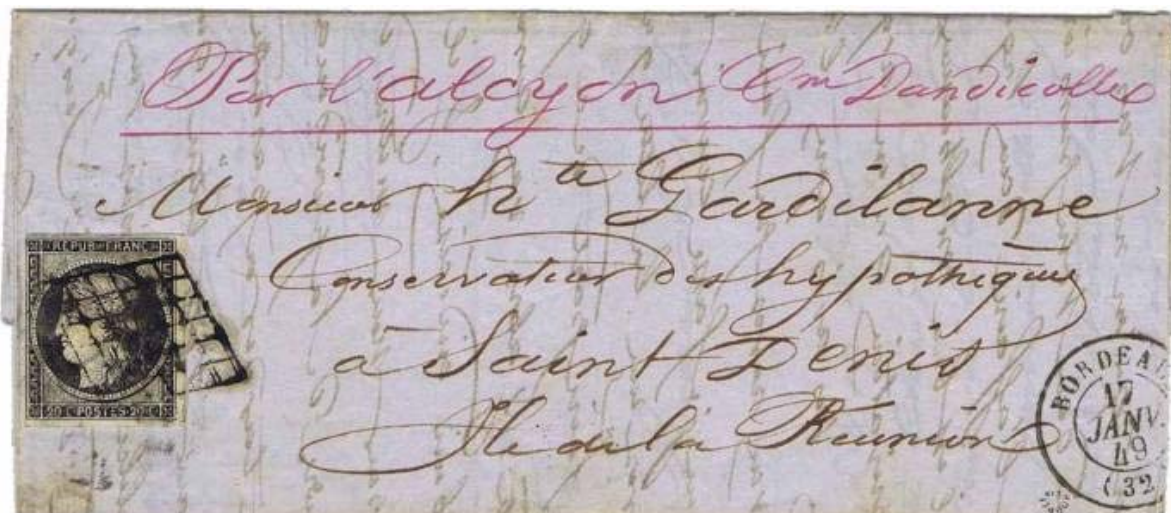 Par l'alcyon Cne Dandicolle
Monsieur hte Gardilanne
Conservateur des hypothèques
à Saint Denis
Ile de la Réunion
REPUB FRANC
20 C POSTES 20 C
BORDEA
17
JANV.
49
(32